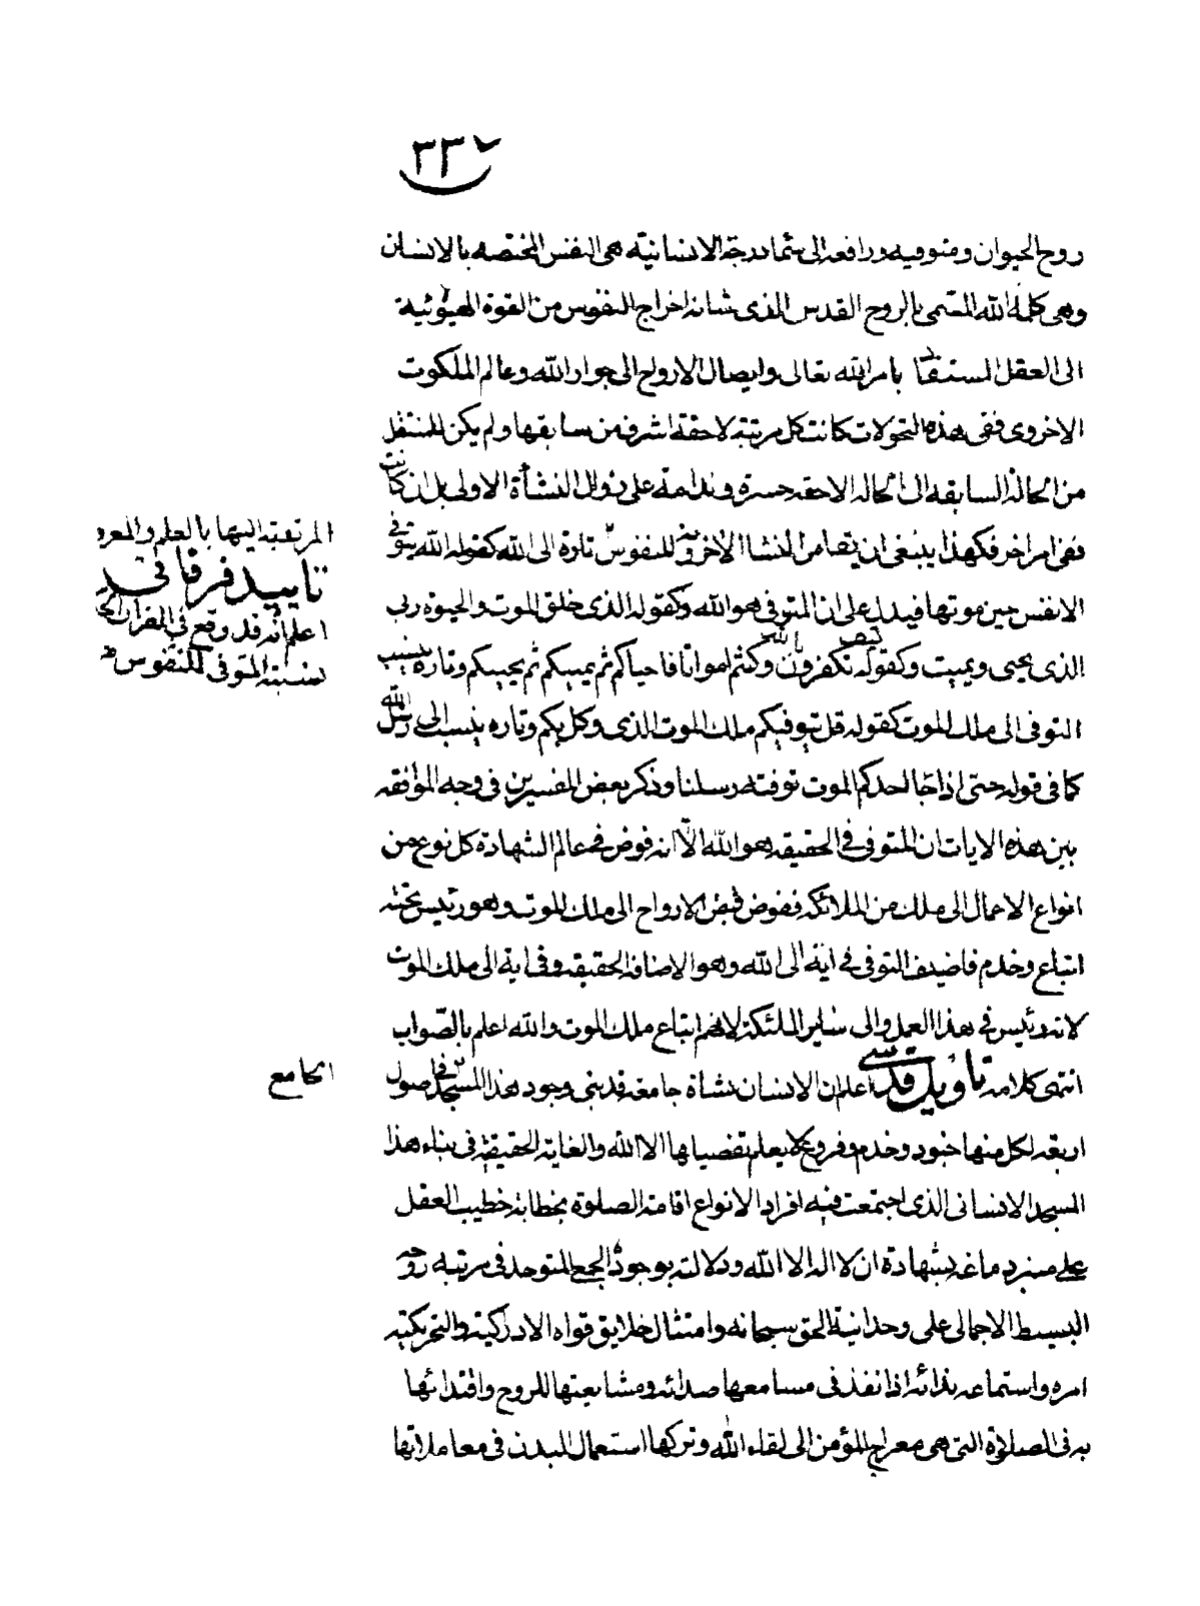 ٣٣٧
روح الحيوان ومتوفيه ورافعه الى سما درجة الانسانية هى النفس المختصه بالانسان
وهى كلمة الله المسمى بالروح القدس الذى شانه اخراج النفوس من القوة الهيولانية
الى العقل المستفاد بامر الله تعالى وايصال الارواح الى جوار الله وعالم الملكوت
الاخروى ففى هذه التحولات كانت كل مرتبة لاحقة اشرف من سابقها ولم يكن للمنتقل
من الحالة السابقه الى الحاله الاحقه حسرة وندامة على زوال النشأة الاولى بل ان كانت
ففى امر اخر فكهذا ينبغى ان يتصا من النشا الاخروية للنفوس تارة الى الله كقوله الله يتوفى
الانفس حين موتها فيدل على ان المتوفى هو الله وكقوله الذى خلق الموت والحيوة ربى
الذى يحيى ويميت وكقوله كيف تكفرون بالله وكنتم امواتا فاحياكم ثم يميتكم ثم يحييكم وتاره ينسب
التوفى الى ملك الموت كقوله قل يتوفيكم ملك الموت الذى وكل بكم وتاره ينسب الى رسل الله
كما فى قوله حتى اذا جا احدكم الموت توفته رسلنا وذكر بعض المفسرين فى وجه الموافقه
بين هذه الايات ان المتوفى فى الحقيقه هو الله الا انه فوض فى عالم الشهادة كل نوع من
انواع الاعمال الى ملك من الملائكه ففوض قبض الارواح الى ملك الموت وهو رئيس تحته
اتباع وخدم فاضيف التوفى فى اية الى الله وهو الاضافه الحقيقه وفى اية الى ملك الموت
لانه رئيس فى هذا العمل والى ساير الملئكة لانهم اتباع ملك الموت والله اعلم بالصواب
انتهى كلامه تاويل قدسى اعلم ان الانسان نشاة جامعه قد بنى وجود هذا المسجد فى اصول
اربعه لكل منها جنود وخدم وفروع لا يعلم تفصيلها الا الله والغاية الحقيقة فى بناء هذا
المسجد الانسانى الذى اجتمعت فيه افراد الانواع اقامة الصلوة بخطابة خطيب العقل
على منبر دماغه بشهادة ان لا اله الا الله ودلالته بوجود الجمع المتوحد فى مرتبه روحه
البسيط الاجمالى على وحدانية الحق سبحانه وامتثال خلايق قواه الادراكية والتحريكيه
امره واستماعه ندائه اذا نفذ فى مسامعها صدائه ومشايعتها للروح واقتدائها
به فى الصلاة التى هى معراج المؤمن الى لقاء الله وتركها استعمال البدن فى معاملاتها
المرتقية اليها بالعلم والمعرفة
تاييد فرقانى
اعلم انه قد وقع فى القران
نسبة التوفى للنفوس
الجامع